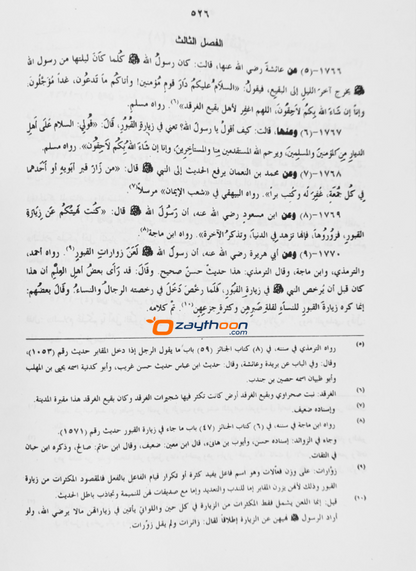 ٥٢٦
الفصل الثالث
١٧٦٦-(٥) عن عائشة رضي الله عنها، قالت: كان رسولُ الله ﷺ كُلما كانَ ليلتها من رسول الله
ﷺ يخرج آخر الليل إلى البقيع، فيقولُ: «السلامُ عليكم دارَ قومٍ مؤمنين! وأتاكُم ما تُدعُون، غداً مُؤجَّلُونَ،
وإنا إن شاءَ الله بِكُم لاحِقُونَ، اللهم اغفر لأهل بقيع الغرقد»(٦). رواه مسلم.
١٧٦٧-(٦) ومنها، قالت: كيفَ أقولُ يا رسولَ الله؟ تعني في زيارة القُبور، قالَ: «قُولي: السلام على أهلِ
الديارِ من المؤمنين والمسلمين، ويرحم الله المستقدمين منا والمستأخرين، وإنا إن شاءَ اللهُ بِكُم لاحِقُونَ». رواه مسلم.
١٧٦٨-(٧) ومن محمد بن النعمان يرفع الحديث إلى النبي ﷺ قال: «من زارَ قبرَ أبويهِ أو أحدهما
في كُلِّ جُمُعَةٍ، غُفِرَ لَه وكتبَ براً». رواه البيهقي في «شعب الإيمان» مرسلاً(٧).
١٧٦٩-(٨) ومن ابن مسعود رضي الله عنه، أن رَسُولَ الله ﷺ قال: «كنت نَهيتُكُم عَن زيَارة
القبورِ، فزُورُوهَا، فإنها تزهد في الدنيا، وتذكرُ الآخرة». رواه ابن ماجة(٨).
١٧٧٠-(٩) ومن أبي هريرة رضي الله عنه، أن رسول الله ﷺ لعَنَ زوارات القبور(٩). رواه أحمد،
والترمذي، وابن ماجة، وقال الترمذي: هذا حديثٌ حسنٌ صحيح. وقالَ: قد رأى بعضُ أهل العِلْمِ أن هذا
كان قبل أن يُرخص النبي ﷺ في زيارةِ القُبُورِ، فلما رخصَ دَخَلَ في رخصته الرجالُ والنساءُ؛ وقالَ بعضُهم:
إنما كره زيارة القبور للنساء لقلةِ صبرهن وكثرة جزعهن(١٠). تمّ كلامه.
zaythoon.com
(٥) رواه الترمذي في سننه، في (٨) كتاب الجنائز (٥٩) باب ما يقول الرجل إذا دخل المقابر حديث رقم (١٠٥٣)
وقال: وفي الباب عن بريدة وعائشة، وقال: حديث ابن عباس حديث حسن غريب، وأبو كدنية اسمه يحيى بن المهلب
وأبو ظبيان اسمه حصين بن جندب.
(٦) الغرقد: نبت صحراوي وبقيع الغرقد أرض كانت تكثر فيها شجيرات الغرقد وكان بقيع الغرقد هذا مقبرة المدينة.
(٧) وإسناده ضعيف.
(٨) رواه ابن ماجة في سننه، في (٦) كتاب الجنائز (٤٧) باب ما جاء في زيارة القبور حديث رقم (١٥٧١)
وجاء في الزوائد: إسناده حسن، وأيوب بن هانئ، قال ابن معين: ضعيف، وقال ابن حاتم: صالح، وذكره ابن حبان
في الثقات.
(٩) زوّارات: على وزن فعّالات وهو اسم فاعل يفيد كثرة أو تكرار قيام الفاعل بالفعل فالمقصود المكثرات من زيارة
القبور وذلك لأنهن يزرن المقابر إما للندب والتعديد وإما مع صديقات لهن للنميمة وتجاذب باطل الحديث.
(١٠) قيل: إنما اللعن يشمل فقط المكثرات من الزيارة في كل حين واللواتي يأتين في زياراتهن مالا يرضي الله، ولو
أراد الرسول ﷺ لهيهن عن الزيارة إطلاقاً لقال: زائرات ولم يقل زوّرات.